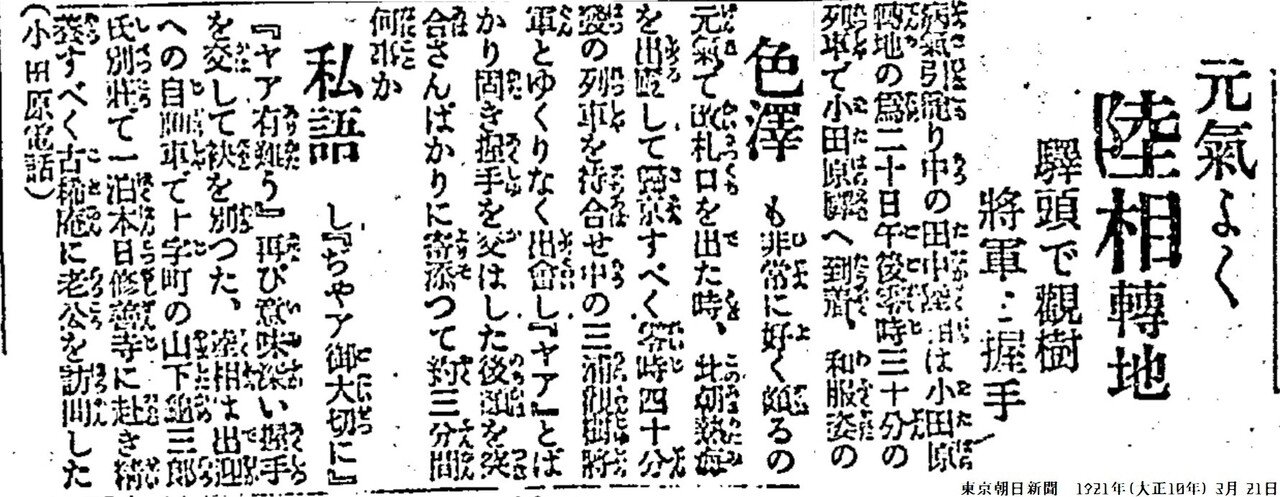 元氣よく
陸相轉地
驛頭で觀樹
將軍と握手
病氣引籠り中の田中陸相は小田原
轉地の爲二十日午後零時三十分の
列車で小田原驛へ到着、和服姿の
色澤 も非常に好く頗るの
元氣で改札口を出た時、此朝熱海
を出して歸京すべく零時四十分
發の列車を待合せ中の三浦觀樹將
軍とゆくりなく出會し『ヤア』とば
かり固き握手を交はした後額を突
合さんばかりに寄添つて約三分間
何事か
私語 し『ぢやア御大切に』
『ヤア有難う』再び意味深い握手
を交して袂を別つた、陸相は出迎
への自動車で十字町の山下龜三郎
氏別莊で一泊本日修善寺に赴き
すべく古稀庵に老公を訪問した
(小田原電話)
東京朝日新聞 1921年(大正10年) 3月 21日